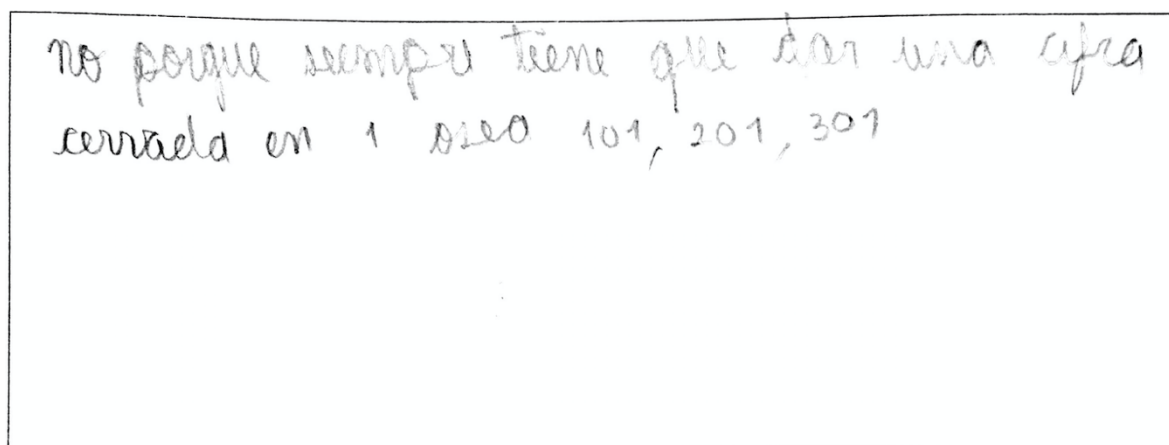 no porque siempre tiene que dar una cifra
cerrada en 1 osea 101, 201, 301